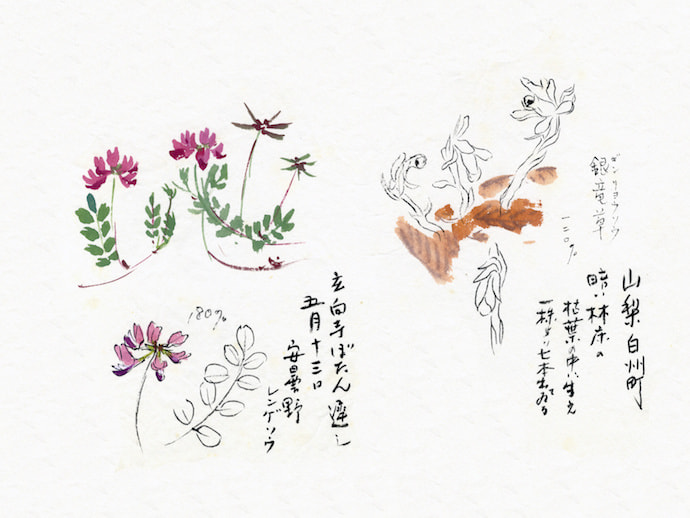 ギンリョウソウ
銀竜草
一二〇%
山梨白州町
暗い林床の
枯葉の中に生え
一株より七本出ている
180%
玄向寺ぼたん遅し
五月十三日
安曇野
レンゲソウ